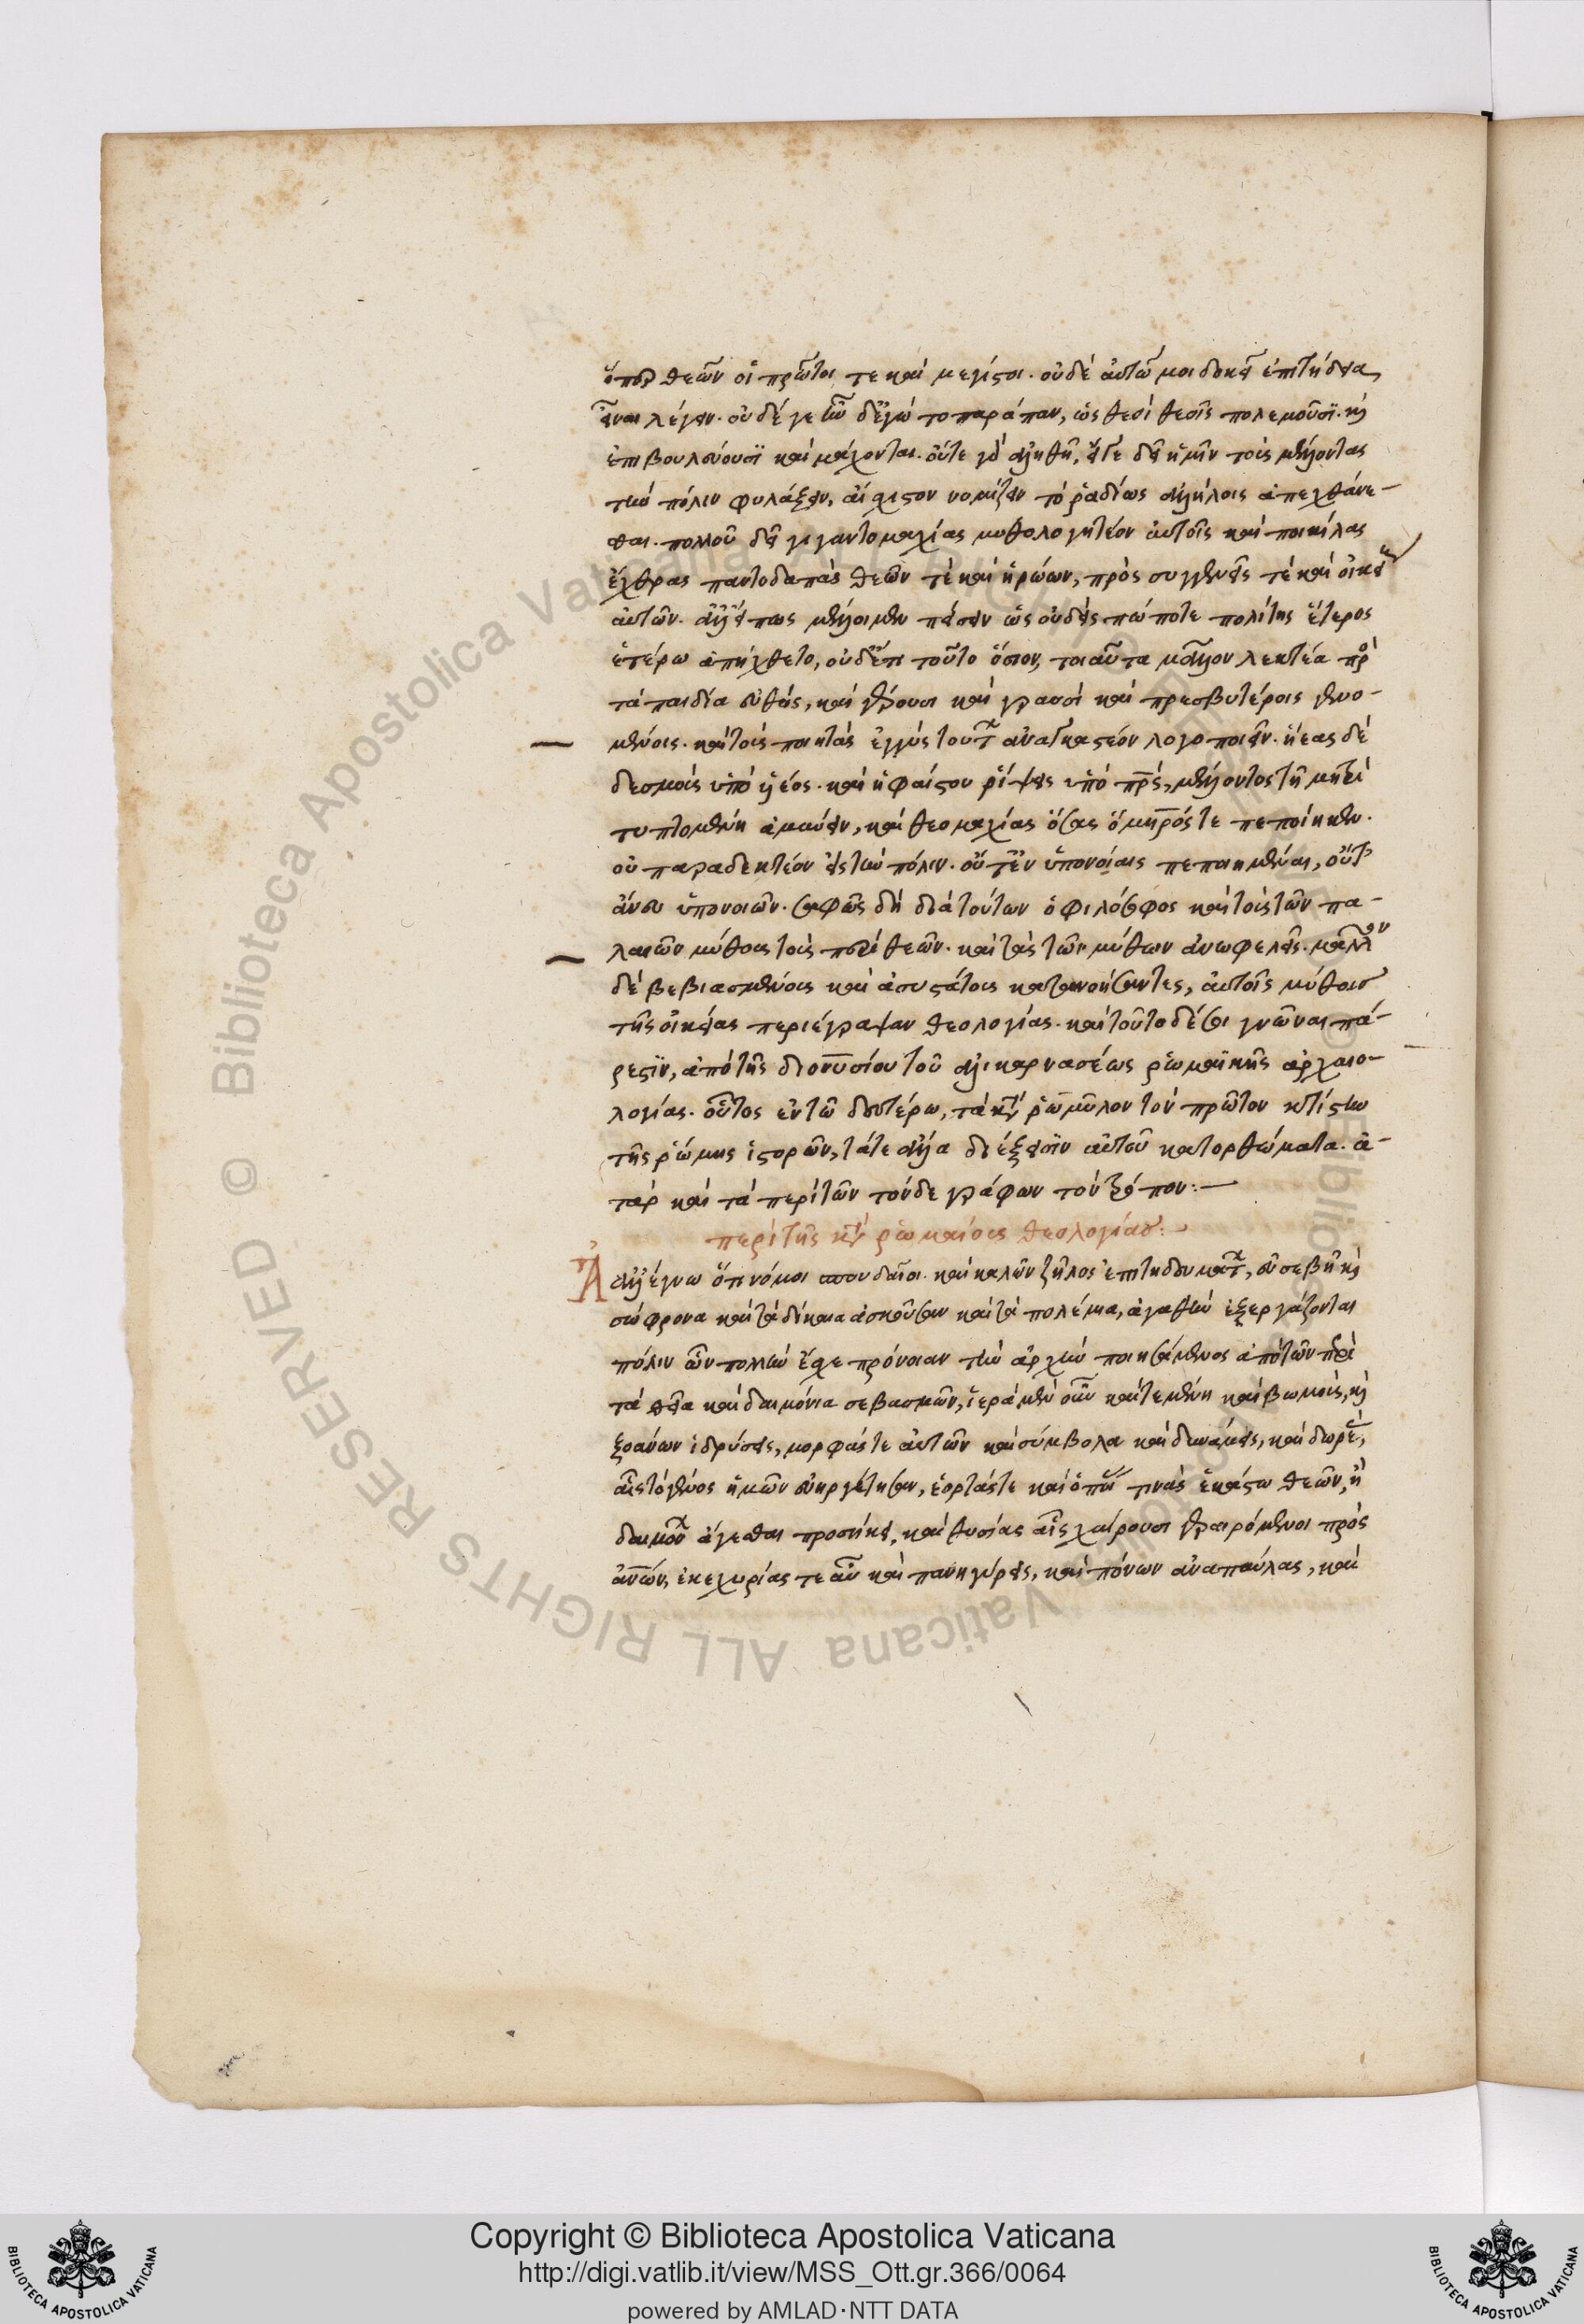 ὅπερ θεῶν οἱ πρῶτοι τε καὶ μεγίστοι. οὐδὲ αὐτῶ μοι δοκεῖ ἐπιτήδεια
εἶναι λέγειν. οὐδέ γε ὦ δ' ἐγὼ τοπαράπαν, ὡς θεοὶ θεοῖς πολεμοῦσϊ. καὶ
ἐπιβουλεύουσϊ καὶ μάχονται. οὔτε γὰρ ἀληθῆ, εἴγε δεῖ ἡμῖν τοὺς μέλλοντας
τὴν πόλιν φυλάξειν, αἴσχιστον νομίζειν τὸ ῥαδίως ἀλλήλοις ἀπεχθάνε-
σθαι. πολλοῦ δεῖ γιγαντομαχίας μυθολογητέον αὐτοῖς καὶ ποικίλας
ἔχθρας παντοδαπὰς θεῶν τὲ καὶ ἡρώων, πρὸς συγγενεῖς τὲ καὶ οἰκείους
αὐτῶν. ἀλλ' εἴ πως μέλλοιμεν πείσειν ὡς οὐδεὶς πώποτε πολίτης ἕτερος
ἑτέρω ἀπήχθετο, οὐδ' ἔτι τοῦτο ὅσιον, τοιαῦτα μᾶλλον λεκτέα πρὸς
τὰ παιδία εὐθὺς, καὶ γέρουσι καὶ γραυσὶ καὶ πρεσβυτέροις γενο-
μένοις. καὶ τοὺς ποιητὰς ἐγγὺς τούτων ἀναγκαστέον λογοποιεῖν. ἥρας δὲ
δεσμοὺς ὑπὸ υἱέος. καὶ ἡφαίστου ῥίψεις ὑπὸ πρς, μέλλοντος τῆ μητρὶ
τυπτομένη ἀμαύειν, καὶ θεομαχίας ὅσας ὅμηρός τε πεποίηκεν.
οὐ παραδεκτέον εἰς τὴν πόλιν. οὔτ' ἐν ὑπονοίαις πεποιημέναι, οὔτ'
ἄνευ ὑπονοιῶν. σαφῶς δὴ διὰ τούτων ὁ φιλόσοφος καὶ τοὺς τῶν πα-
λαιῶν μύθους τοὺς περὶ θεῶν. καὶ τὰς τῶν μύθων ἀνωφελεῖς. μᾶλλον
δὲ βεβιασμένους καὶ ἀσυστάτους κατανοήσαντες, αὐτοῖς μύθοισ
τῆς οἰκείας περιέγραψαν θεολογίας. καὶ τοῦτο δέ σοι γνῶναι πά-
ρεστϊν, ἀπὸ τῆς διονυσίου τοῦ ἁλικαρνασέως ῥωμαϊκῆς ἀρχαιο-
λογίας. οὗτος ἐν τῶ δευτέρω, τὰ κατὰ ῥωμῦλον τὸν πρῶτον κτίστην
τῆς ῥώμης ἱστορῶν, τάτε ἄλλα διέξεισϊν αὐτοῦ κατορθώματα. ἀ-
τὰρ καὶ τὰ περὶ τῶν τόνδε γράφων τὸν τρόπον:—
περὶ τῆς κατὰ ῥωμαίους θεολογίασ:—
Ἀλλ' ἔγνω ὅτι νόμοι σπουδαῖοι. καὶ καλῶν ζῆλος ἐπιτηδευμάτων, εὐσεβῆ καὶ
σώφρονα καὶ τὰ δίκαια ἀσκοῦσαν καὶ τὰ πολέμια, ἀγαθὴν ἐξεργάζονται
πόλιν ὧν πολλὴν ἔσχε πρόνοιαν τὴν ἀρχὴν ποιησάμενος ἀπὸ τῶν περὶ
τὰ θεῖα καὶ δαιμόνια σεβασμῶν, ἱερὰ μὲν οὖν καὶ τεμένη καὶ βωμοὺς, καὶ
ξοάνων ἱδρύσεις, μορφάς τε αὐτῶν καὶ σύμβολα καὶ δυνάμεις, καὶ δωρεὰς,
αἷς τὸ γένος ἡμῶν εὐηργέτησαν, ἑορτάς τε καὶ ὁποίας τινὰς ἑκάστω θεῶν, ἢ
δαιμόνων ἄγεσθαι προσήκει, καὶ θυσίας αἷς χαίρουσι γεραιρόμενοι πρὸς
ἀνων, ἐκεχειρίας τε αὖ καὶ πανηγύρεις, καὶ πόνων ἀναπαύλας, καὶ
Copyright © Biblioteca Apostolica Vaticana
http://digi.vatlib.it/view/MSS_Ott.gr.366/0064
powered by AMLAD·NTT DATA
BIBLIOTECA APOSTOLICA VATICANA
BIBLIOTECA APOSTOLICA VATICANA
© Biblioteca Apostolica Vaticana ALL RIGHTS RESERVED